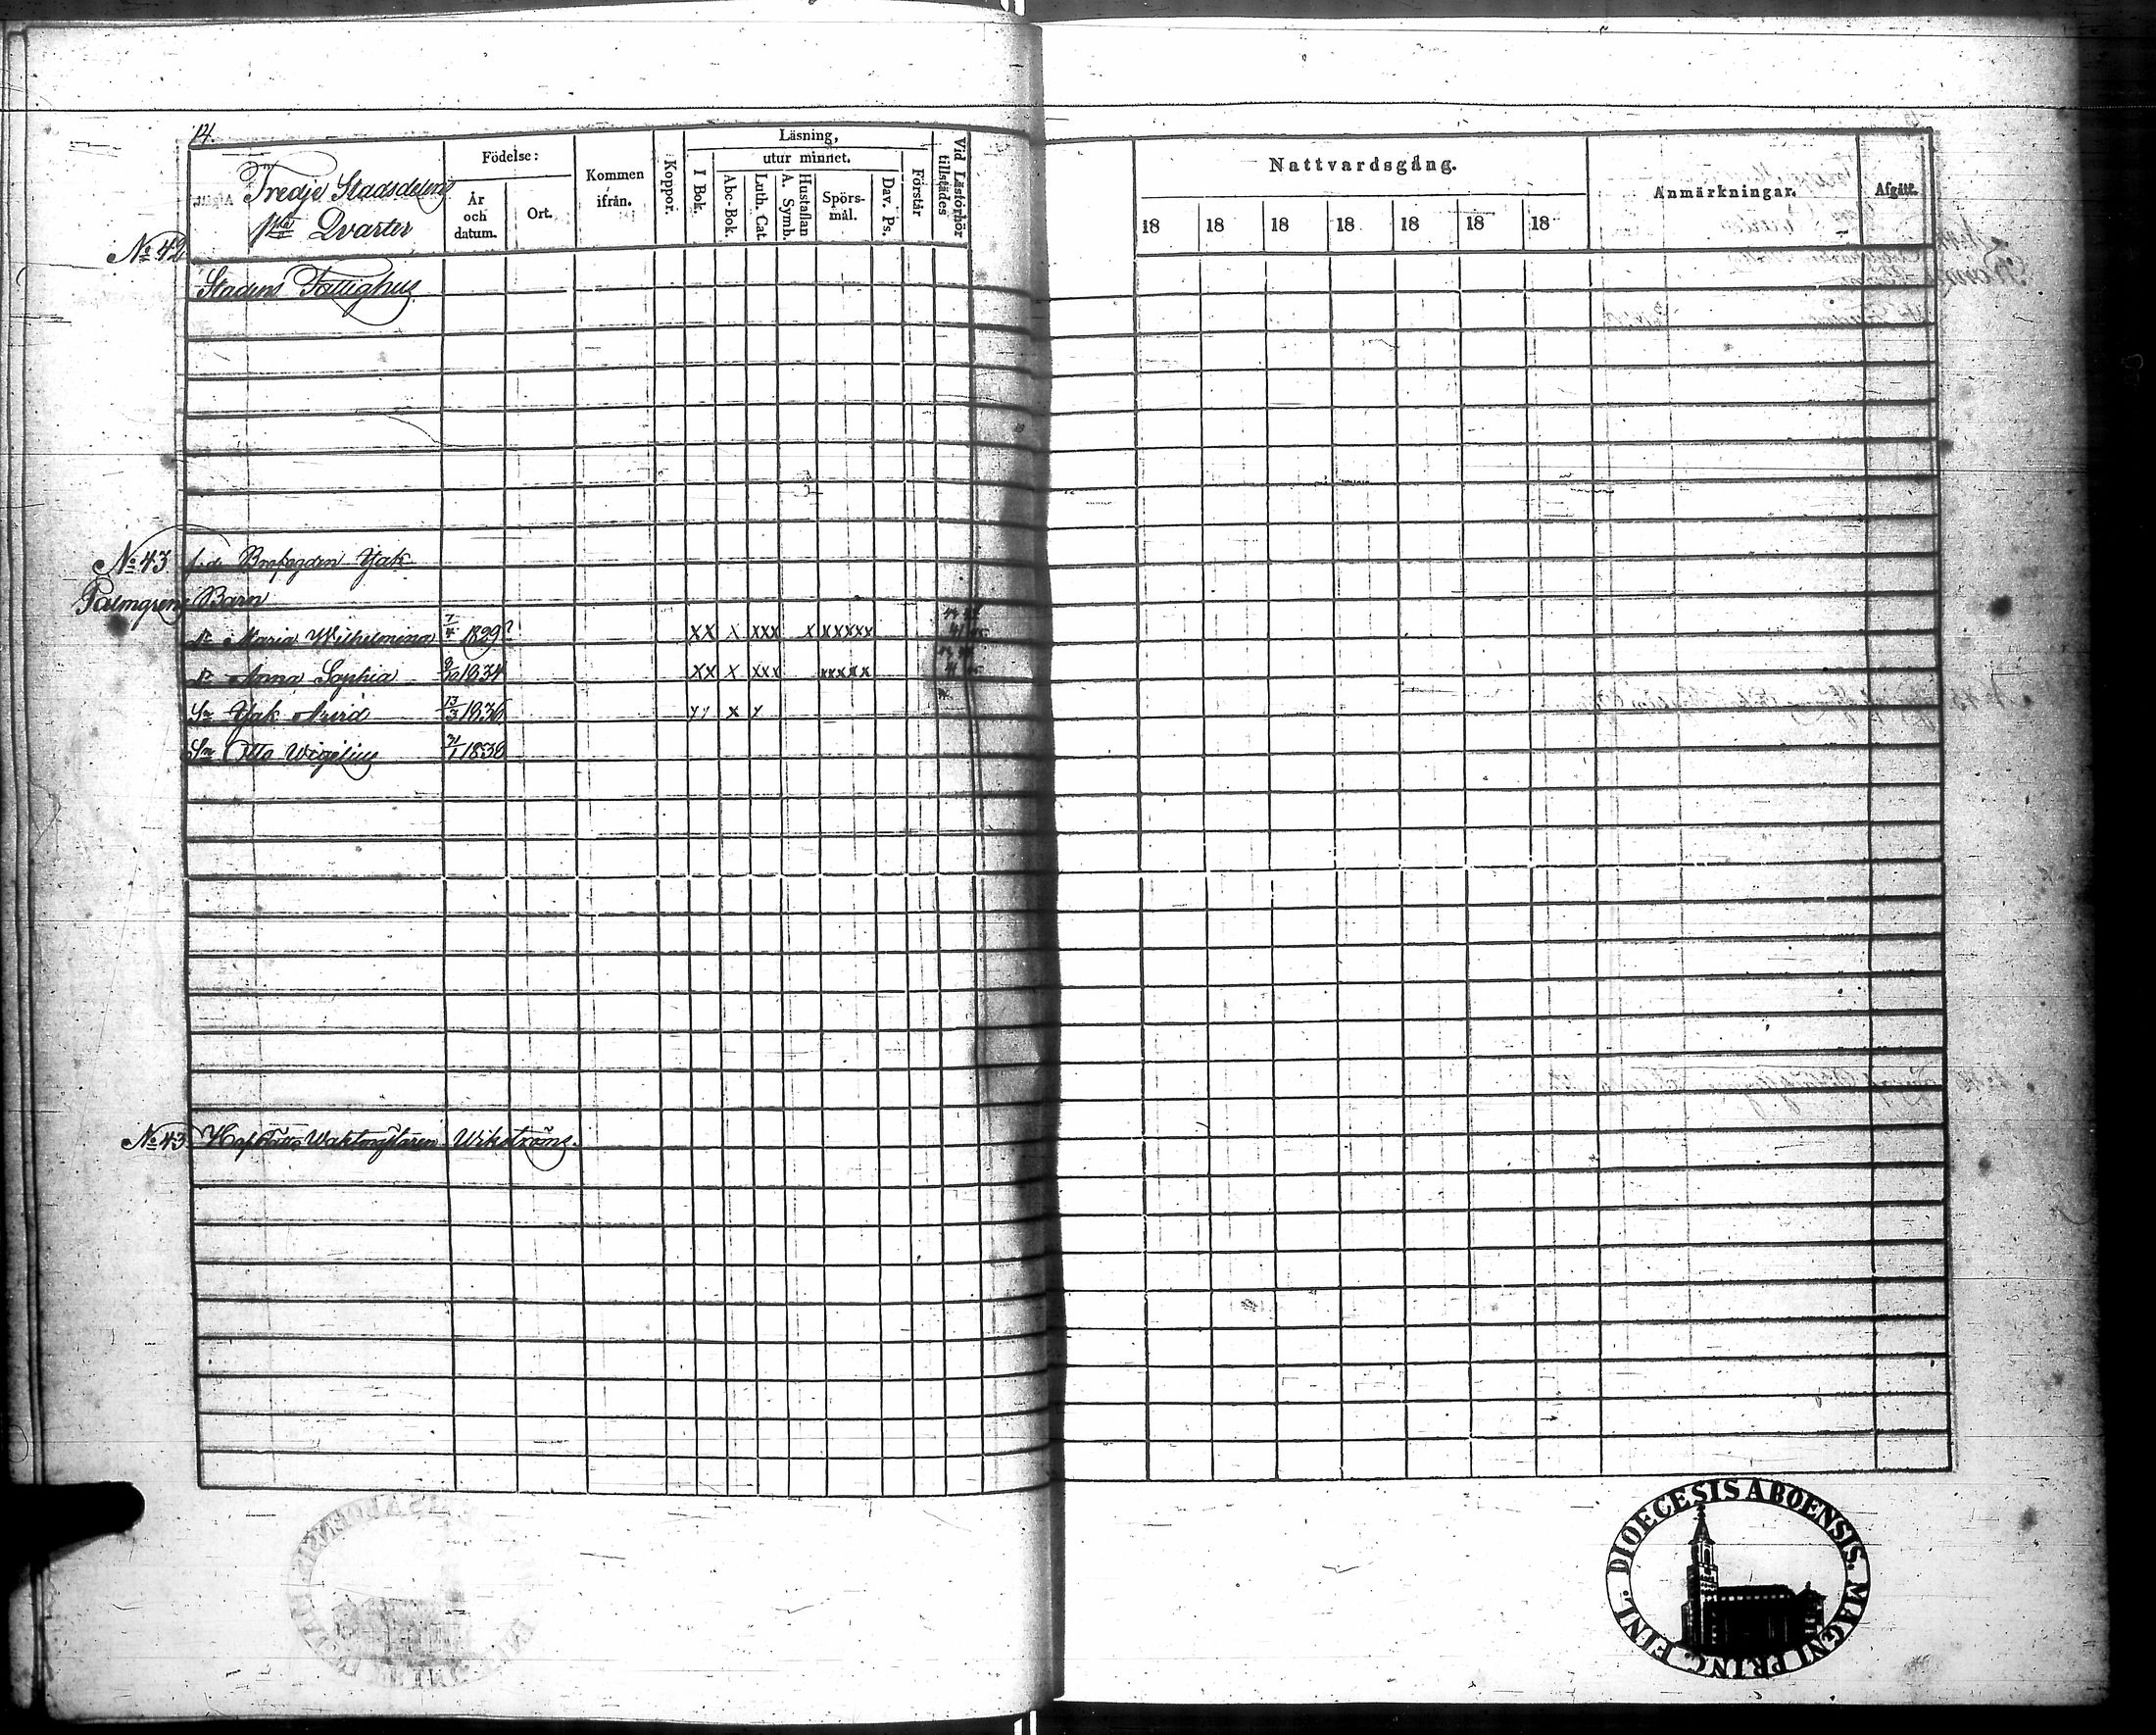 14.
Tredje Stadsdelens
1sta Qvarter
Födelse:
År och datum.
Ort.
Kommen ifrån.
Koppor.
Läsning,
utur minnet.
I Bok.
Abc-Bok.
Luth. Cat.
A. Symb.
Hustaflan
Spörs-mål.
Dav. Ps.
Förstår
Vid Läsförhör tillstädes
Nattvardsgång.
18 18 18 18 18 18 18
Anmärkningar.
Afgått.
No 42
Stadens Fattighus
No 43 f.d. Jak
Palmgrens Barn
Dr Maria Wilhelmina 7/4 1829? xx x xxx x xxxxx
Dr Anna Sophia 1834 xx x xxx xxxxx
Sn Jak Arvid 13/3 1836 yy x y
Sn Otto Wigelius 1838
No 43 Waktmästaren Wikströms.
DIOECESIS ABOENSIS. MAGNI PRINC. FINL.